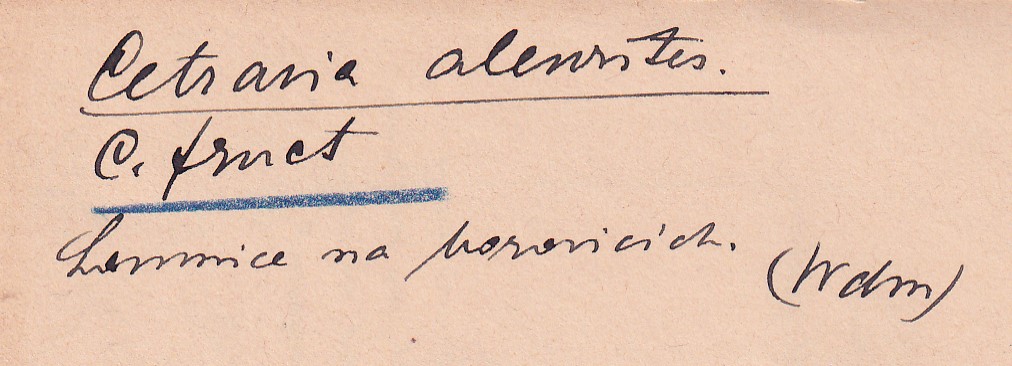 Cetraria aleurites.
C. fruct
Lomnice na borovicích.
(Wdm)